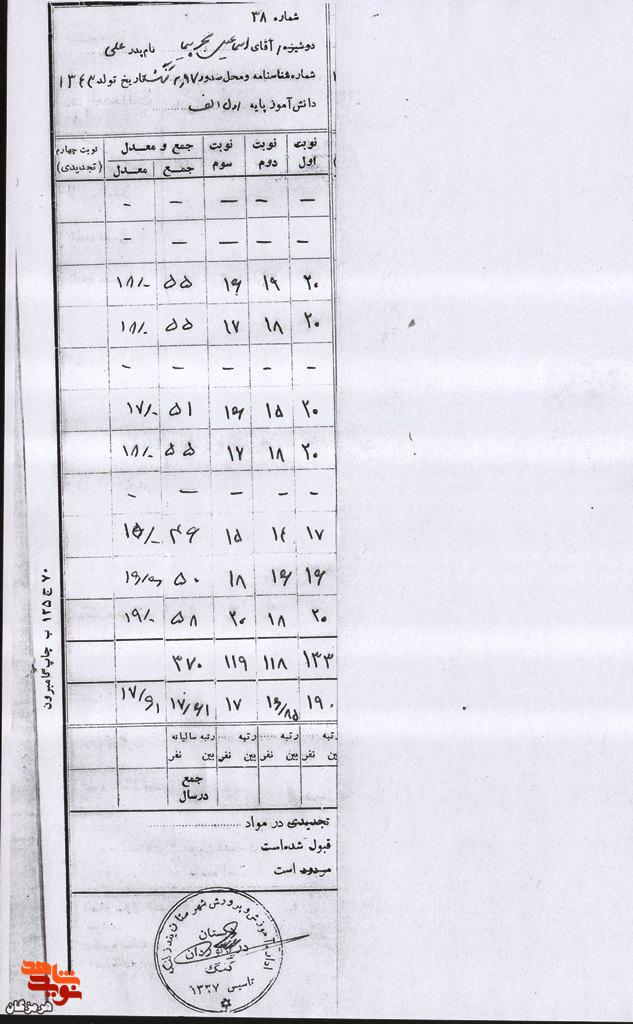 شماره ۳۸
دوشیزه/آقای اسماعیل نام پدر علی
شماره شناسنامه و محل صدور ۲۰۹۷ تاریخ تولد ۱۳۴۳
دانش‌آموز پایه اول الف
نوبت اول نوبت دوم نوبت سوم جمع و معدل نوبت چهارم (تجدیدی)
جمع معدل
— — — — -
— — — — -
۲۰ ۱۹ ۱۶ ۵۵ ۱۸/-
۲۰ ۱۸ ۱۷ ۵۵ ۱۸/-
- - - - -
۲۰ ۱۵ ۱۶ ۵۱ ۱۷/-
۲۰ ۱۸ ۱۷ ۵۵ ۱۸/-
- - - - -
۱۷ ۱۴ ۱۵ ۴۶ ۱۵/-
۱۶ ۱۶ ۱۸ ۵۰ ۱۶/۶۰
۲۰ ۱۸ ۲۰ ۵۸ ۱۹/-
۱۳۳ ۱۱۸ ۱۱۹ ۳۷۰
۱۹۰ ۱۶/۸۵ ۱۷ ۱۷/۶۱ ۱۷/۶۱
رتبه رتبه رتبه رتبه سالیانه
بین نفر بین نفر بین نفر
جمع
در سال
تجدیدی در مواد
قبول شده‌است
مردود است
اداره آموزش و پرورش شهرستان بندر لنگه
کنگ
تاسیس ۱۳۳۷
۷۰ ج ۱۲۵ ب چاپ گامبرون
شاهد
نوید
هرمزگان